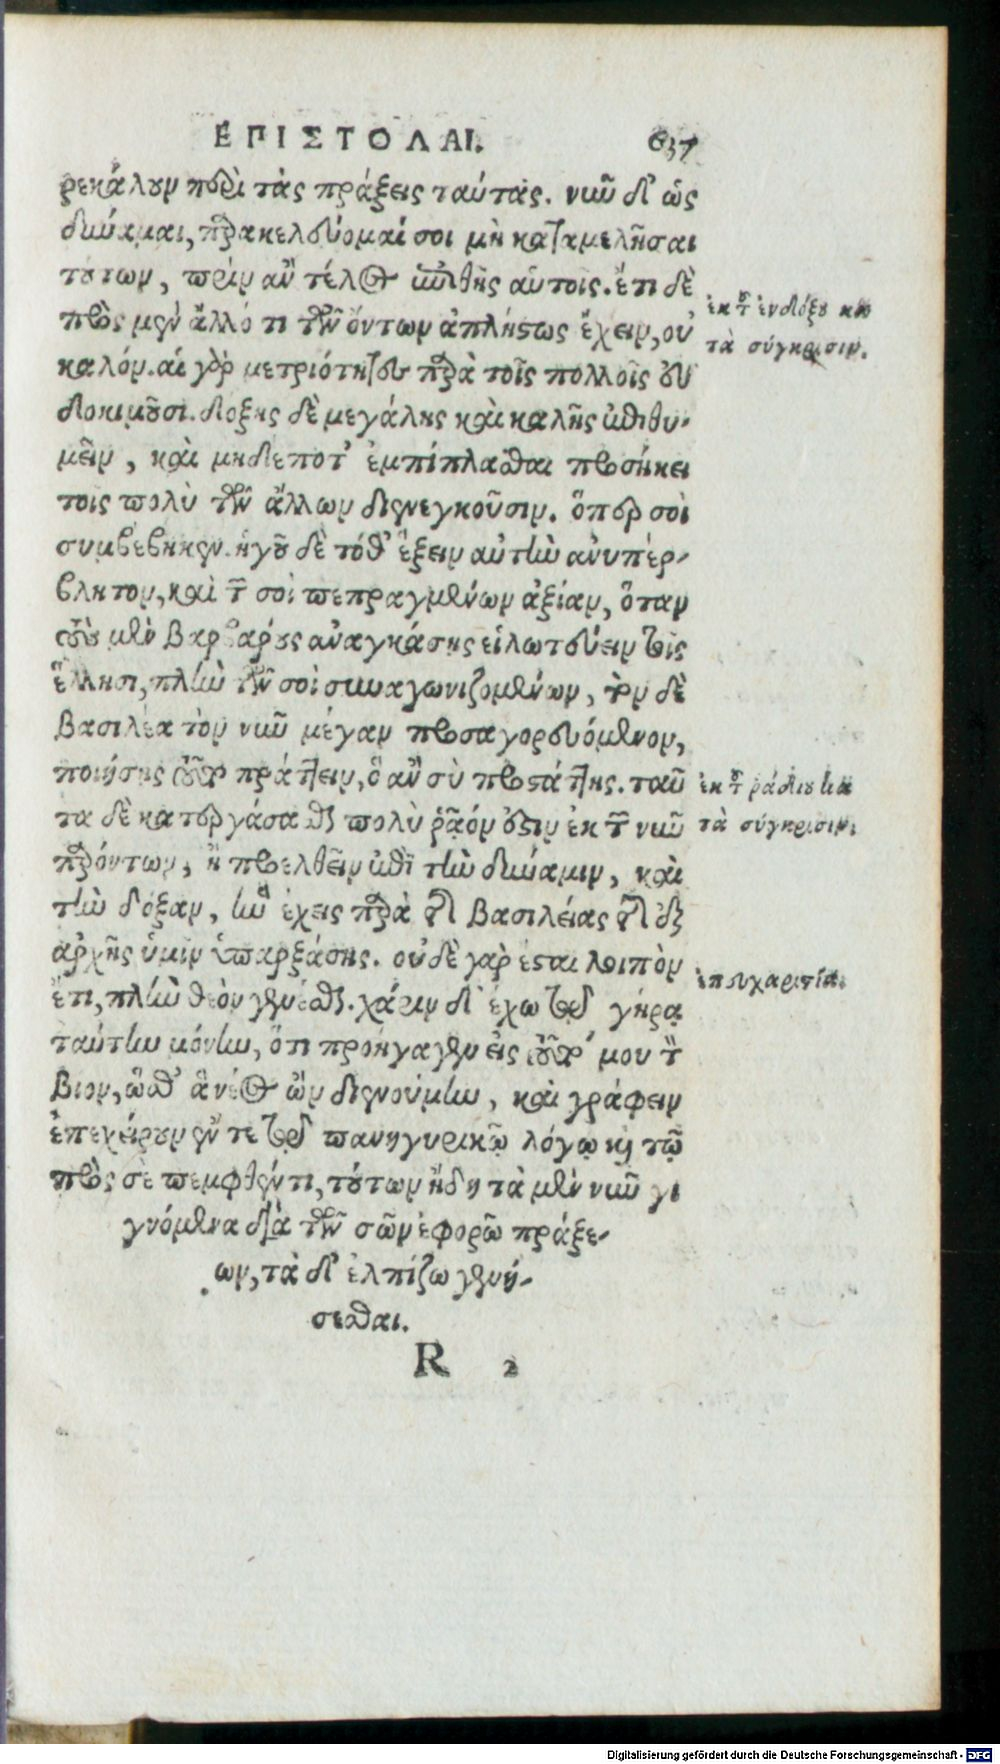 ΕΠΙΣΤΟΛΑΙ.
ρεκάλουν περὶ τὰς πράξεις ταύτας. νῦν δ' ὡς
δύναμαι, παρακελεύομαί σοι μὴ καταμελῆσαι
τούτων, πρὶν ἂν τέλος ἐπιθῇς αὐτοῖς. ἔτι δὲ
πρὸς μὲν ἄλλό τι τῶν ὄντων ἀπλήστως ἔχειν, οὐ
καλόν. αἱ γὰρ μετριότητες παρὰ τοῖς πολλοῖς εὐ
δοκιμοῦσι. δόξης δὲ μεγάλης καὶ καλῆς ἐπιθυ-
μεῖν, καὶ μηδέποτ' ἐμπίπλασθαι προσήκει
τοῖς πολὺ τῶν ἄλλων διενεγκοῦσιν. ὅπερ σοὶ
συμβέβηκεν. ἡγοῦ δὲ τόθ' ἕξειν αὐτὴν ἀνυπέρ-
βλητον, καὶ τῶν σοὶ πεπραγμένων ἀξίαν, ὅταν
τοὺς μὲν βαρβάρους ἀναγκάσῃς εἱλωτεύειν τοῖς
ἕλλησι, πλὴν τῶν σοὶ συναγωνιζομένων, τὸν δὲ
βασιλέα τὸν νῦν μέγαν προσαγορευόμενον,
ποιήσῃς τοῦτο πράττειν, ὃ ἂν σὺ προστάττῃς. ταῦ
τα δὲ κατεργάσασθαι πολὺ ῥᾷόν ἐστιν ἐκ τῶν νῦν
παρόντων, ἢ προελθεῖν ἐπὶ τὴν δύναμιν, καὶ
τὴν δόξαν, ἣν ἔχεις παρὰ τῆς βασιλείας τῆς ἐξ
ἀρχῆς ὑμῖν ὑπαρξάσης. οὐδὲ γὰρ ἔσται λοιπὸν
ἔτι, πλὴν θεὸν γενέσθαι. χάριν δ' ἔχω τῷ γήρᾳ
ταύτην μόνην, ὅτι προήγαγεν εἰς τοῦτό μου τὸν
βίον, ὥσθ' ἃ νέος ὢν διενοούμην, καὶ γράφειν
ἐπεχείρουν ἔν τε τῷ πανηγυρικῷ λόγῳ καὶ τῷ
πρὸς σὲ πεμφθέντι, τούτων ἤδη τὰ μὲν νῦν γι
γνόμενα διὰ τῶν σῶν ἐφορῶ πράξε-
ων, τὰ δ' ἐλπίζω γενή-
σεσθαι.
R 2
ἐκ τοῦ ἐνδόξου κα
τὰ σύγκρισιν.
ἐκ τοῦ ῥᾳδίου κα
τὰ σύγκρισιν.
ἐπευχαριστία.
Digitalisierung gefördert durch die Deutsche Forschungsgemeinschaft - DFG